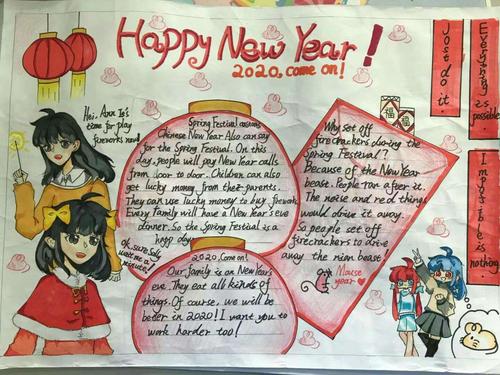 Happy New Year!
2020, come on!
Just do it.
Everything is
possible
Impossible is
nothing.
福
福
time for play
fireworks now!
Oh, sure, Sally
wait me a
minute!
Spring Festival customs
Chinese New Year Also can say
for the Spring Festival. On this
day, people will pay New Year calls
from door to door. Children can also
get lucky money from their parents.
They can use lucky money to buy firework
Every family will have a New Year's eve
dinner. So the Spring Festival is a
happy day
Why set off
firecrackers during the
Spring Festival?
Because of the New Year
beast. People ran after it.
The noise and red things
would drive it away.
So people set off
firecrackers to drive
away the nian beast
Mouse
year
2020, Come on!
Our family is on New Year's
eve. They eat all kinds of
things. Of course, we will be
better in 2020! I want you to
work harder too!